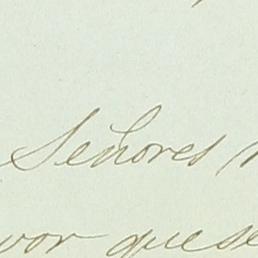 Señores
vor que se